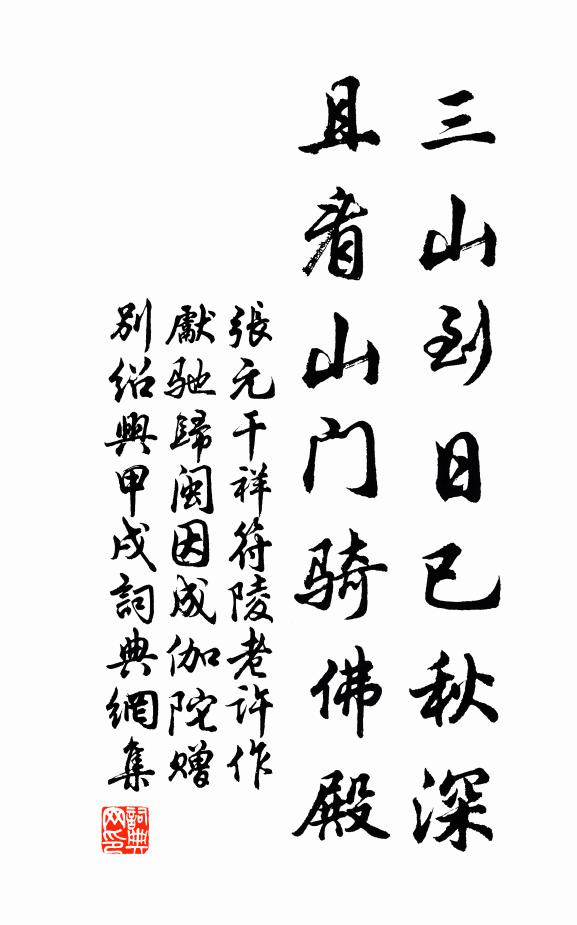 三山到日已秋深
且看山门骑佛殿
張元干祥符陵老許作
獻馳歸闽因成伽陀赠
别绍興甲戌詞典網集
詞典网印